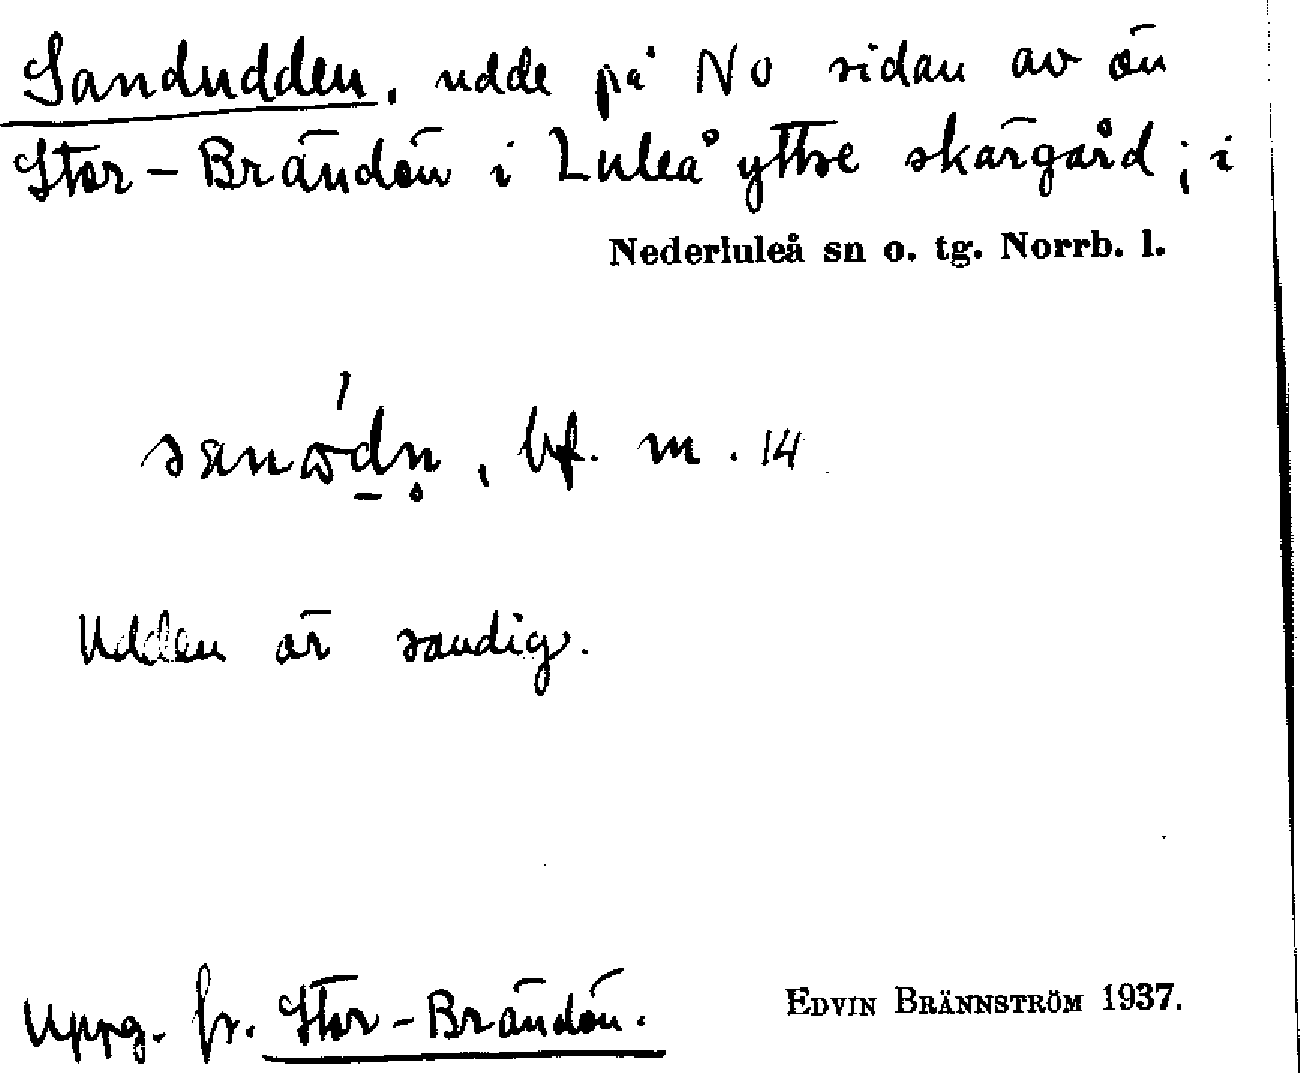 Sandudden, udde på NO sidan av ön
Stor-Brändön i Luleå yttre skärgård; i
Nederluleå sn o. tg. Norrb. l.
bf. m. 14
Udden är sandig.
Uppg. fr. Stor-Brändön.
EDVIN BRÄNNSTRÖM 1937.